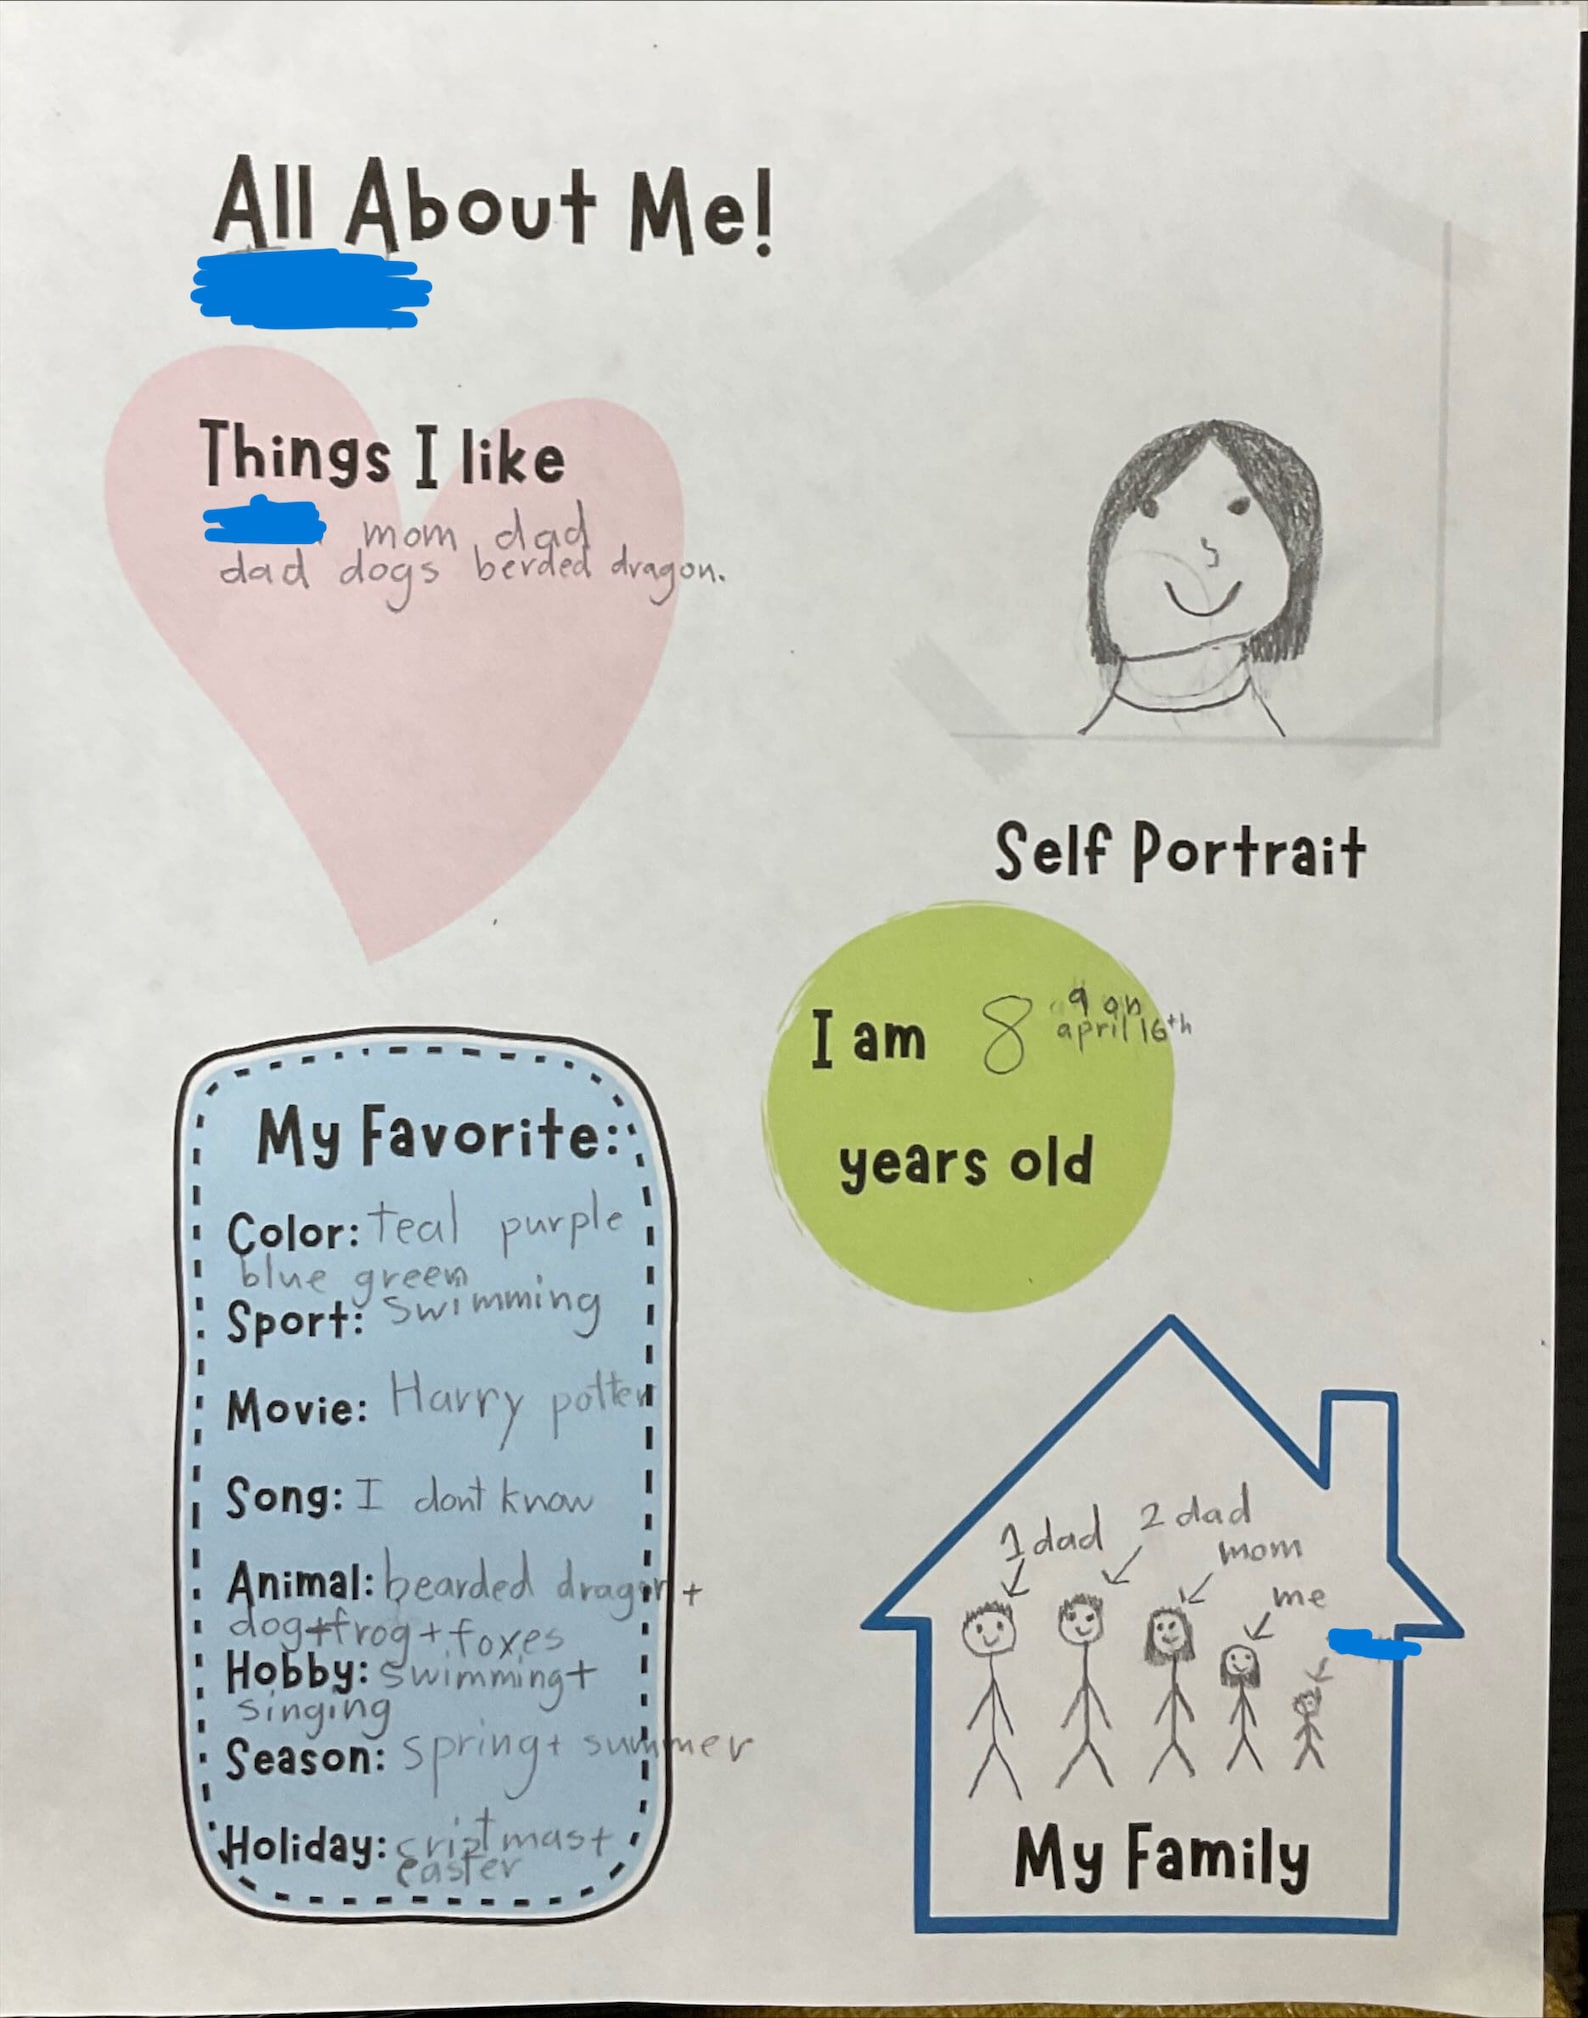 All About Me!
Things I like
mom dad
dad dogs berded dragon.
Self Portrait
I am 8 9 on
april 16th
years old
My Favorite:
Color: teal purple
blue green
Sport: swimming
Movie: Harry potter
Song: I dont know
Animal: bearded dragon +
dog+frog+foxes
Hobby: swimming+
singing
Season: spring+ summer
Holiday: cristmas+
easter
1 dad
2 dad
mom
me
My Family